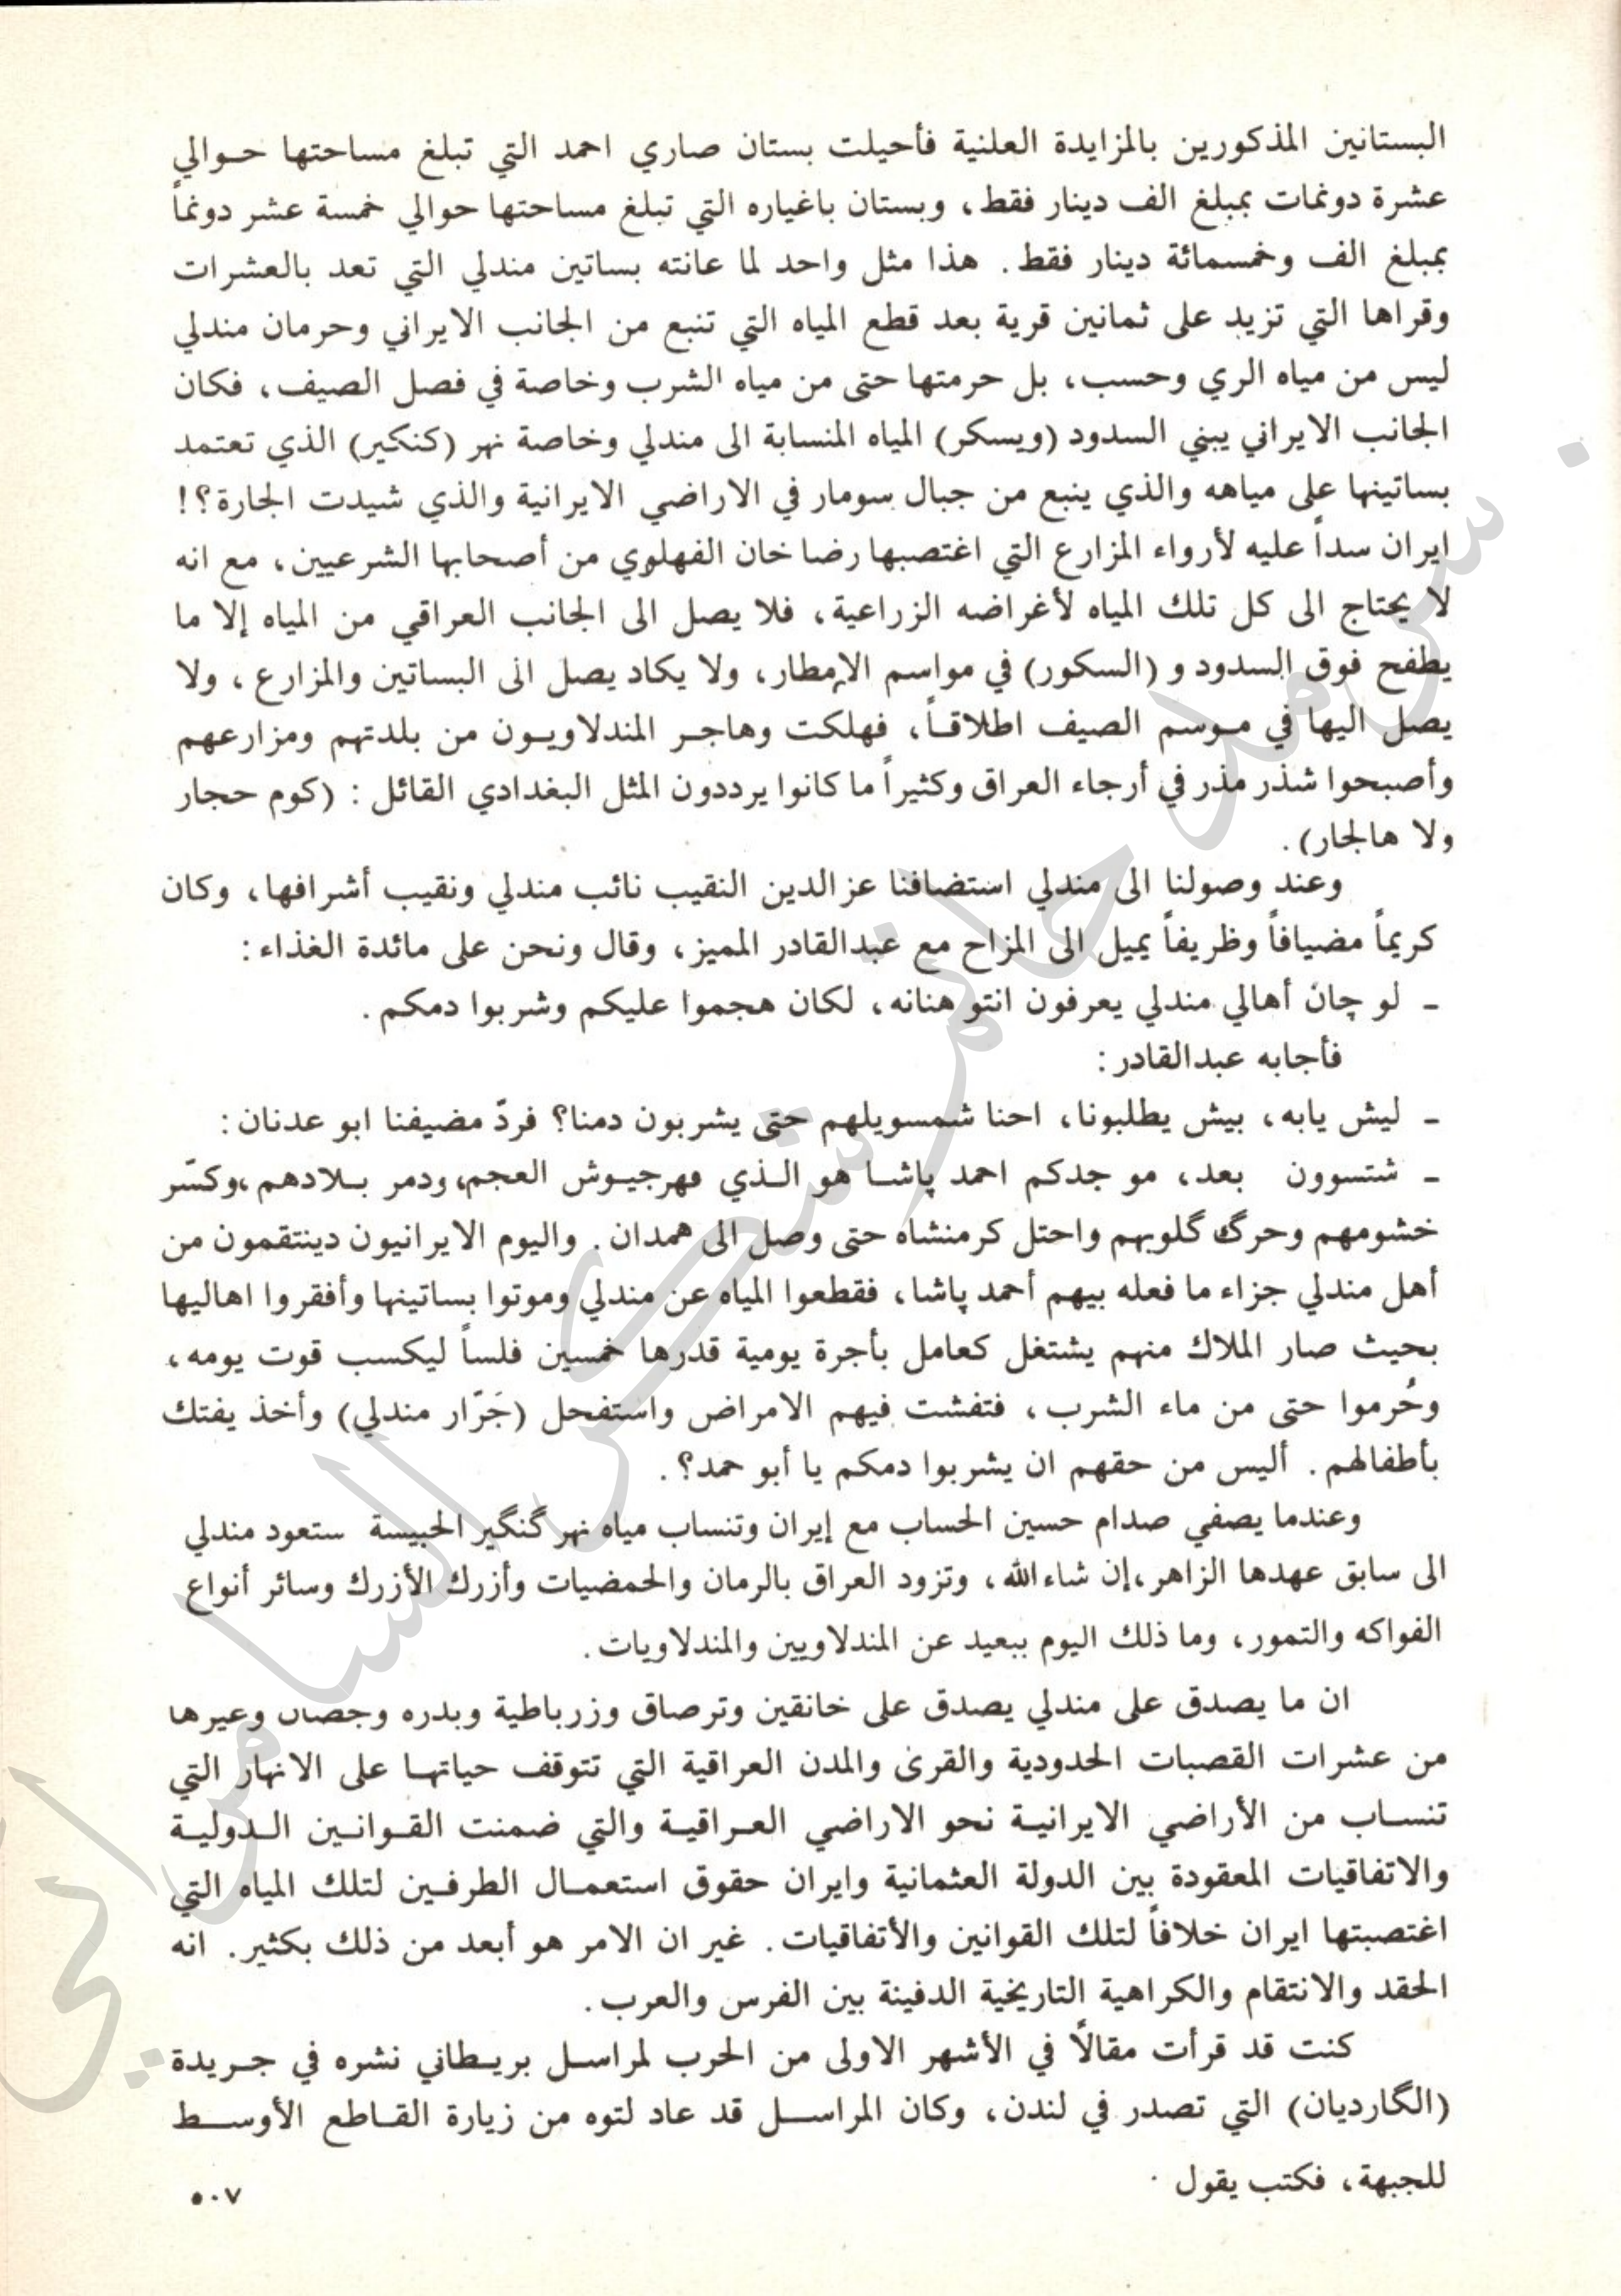 البستانين المذكورين بالمزايدة العلنية فأحيلت بستان صاري احمد التي تبلغ مساحتها حوالي
عشرة دونمات بمبلغ الف دينار فقط، وبستان باغياره التي تبلغ مساحتها حوالي خمسة عشر دونماً
بمبلغ الف وخمسمائة دينار فقط. هذا مثل واحد لما عانته بساتين مندلي التي تعد بالعشرات
وقراها التي تزيد على ثمانين قرية بعد قطع المياه التي تنبع من الجانب الايراني وحرمان مندلي
ليس من مياه الري وحسب، بل حرمتها حتى من مياه الشرب وخاصة في فصل الصيف، فكان
الجانب الايراني يبني السدود (ويسكر) المياه المنسابة الى مندلي وخاصة نهر (كنكير) الذي تعتمد
بساتينها على مياهه والذي ينبع من جبال سومار في الاراضي الايرانية والذي شيدت الجارة؟!
ايران سداً عليه لأرواء المزارع التي اغتصبها رضا خان الفهلوي من أصحابها الشرعيين، مع انه
لا يحتاج الى كل تلك المياه لأغراضه الزراعية، فلا يصل الى الجانب العراقي من المياه إلا ما
يطفح فوق السدود و (السكور) في مواسم الامطار، ولا يكاد يصل الى البساتين والمزارع، ولا
يصل اليها في موسم الصيف اطلاقاً، فهلكت وهاجر المندلاويون من بلدتهم ومزارعهم
وأصبحوا شذر مذر في أرجاء العراق وكثيراً ما كانوا يرددون المثل البغدادي القائل : (كوم حجار
ولا هالجار).
وعند وصولنا الى مندلي استضافنا عز الدين النقيب نائب مندلي ونقيب أشرافها، وكان
كريماً مضيافاً وظريفاً يميل الى المزاح مع عبدالقادر المميز، وقال ونحن على مائدة الغذاء :
ـ لو چان أهالي مندلي يعرفون انتو هنانه، لكان هجموا عليكم وشربوا دمكم.
فأجابه عبدالقادر :
ـ ليش يابه، بيش يطلبونا، احنا شمسويلهم حتى يشربون دمنا؟ فردّ مضيفنا ابو عدنان :
ـ شتسوون بعد، مو جدكم احمد پاشا هو الذي قهر جيوش العجم، ودمر بلادهم، وكسّر
خشومهم وحرگ گلوبهم واحتل كرمنشاه حتى وصل الى همدان. واليوم الايرانيون دينتقمون من
أهل مندلي جزاء ما فعله بيهم أحمد پاشا، فقطعوا المياه عن مندلي وموتوا بساتينها وأفقروا اهاليها
بحيث صار الملاك منهم يشتغل كعامل بأجرة يومية قدرها خمسين فلساً ليكسب قوت يومه،
وحُرموا حتى من ماء الشرب، فتفشت فيهم الامراض واستفحل (جَرّار مندلي) وأخذ يفتك
بأطفالهم. أليس من حقهم ان يشربوا دمكم يا أبو حمد؟.
وعندما يصفي صدام حسين الحساب مع إيران وتنساب مياه نهر گنگير الحبيسة ستعود مندلي
الى سابق عهدها الزاهر، إن شاء الله، وتزود العراق بالرمان والحمضيات وأزرك الأزرك وسائر أنواع
الفواكه والتمور، وما ذلك اليوم ببعيد عن المندلاويين والمندلاويات.
ان ما يصدق على مندلي يصدق على خانقين وترصاق وزرباطية وبدره وجصان وغيرها
من عشرات القصبات الحدودية والقرى والمدن العراقية التي تتوقف حياتها على الانهار التي
تنساب من الأراضي الايرانية نحو الاراضي العراقية والتي ضمنت القوانين الدولية
والاتفاقيات المعقودة بين الدولة العثمانية وايران حقوق استعمال الطرفين لتلك المياه التي
اغتصبتها ايران خلافاً لتلك القوانين والأتفاقيات. غير ان الامر هو أبعد من ذلك بكثير. انه
الحقد والانتقام والكراهية التاريخية الدفينة بين الفرس والعرب.
كنت قد قرأت مقالاً في الأشهر الاولى من الحرب لمراسل بريطاني نشره في جريدة
(الگارديان) التي تصدر في لندن، وكان المراسل قد عاد لتوه من زيارة القاطع الأوسط
للجبهة، فكتب يقول
٥٠٧
سرمد حاتم شكر السامرائي